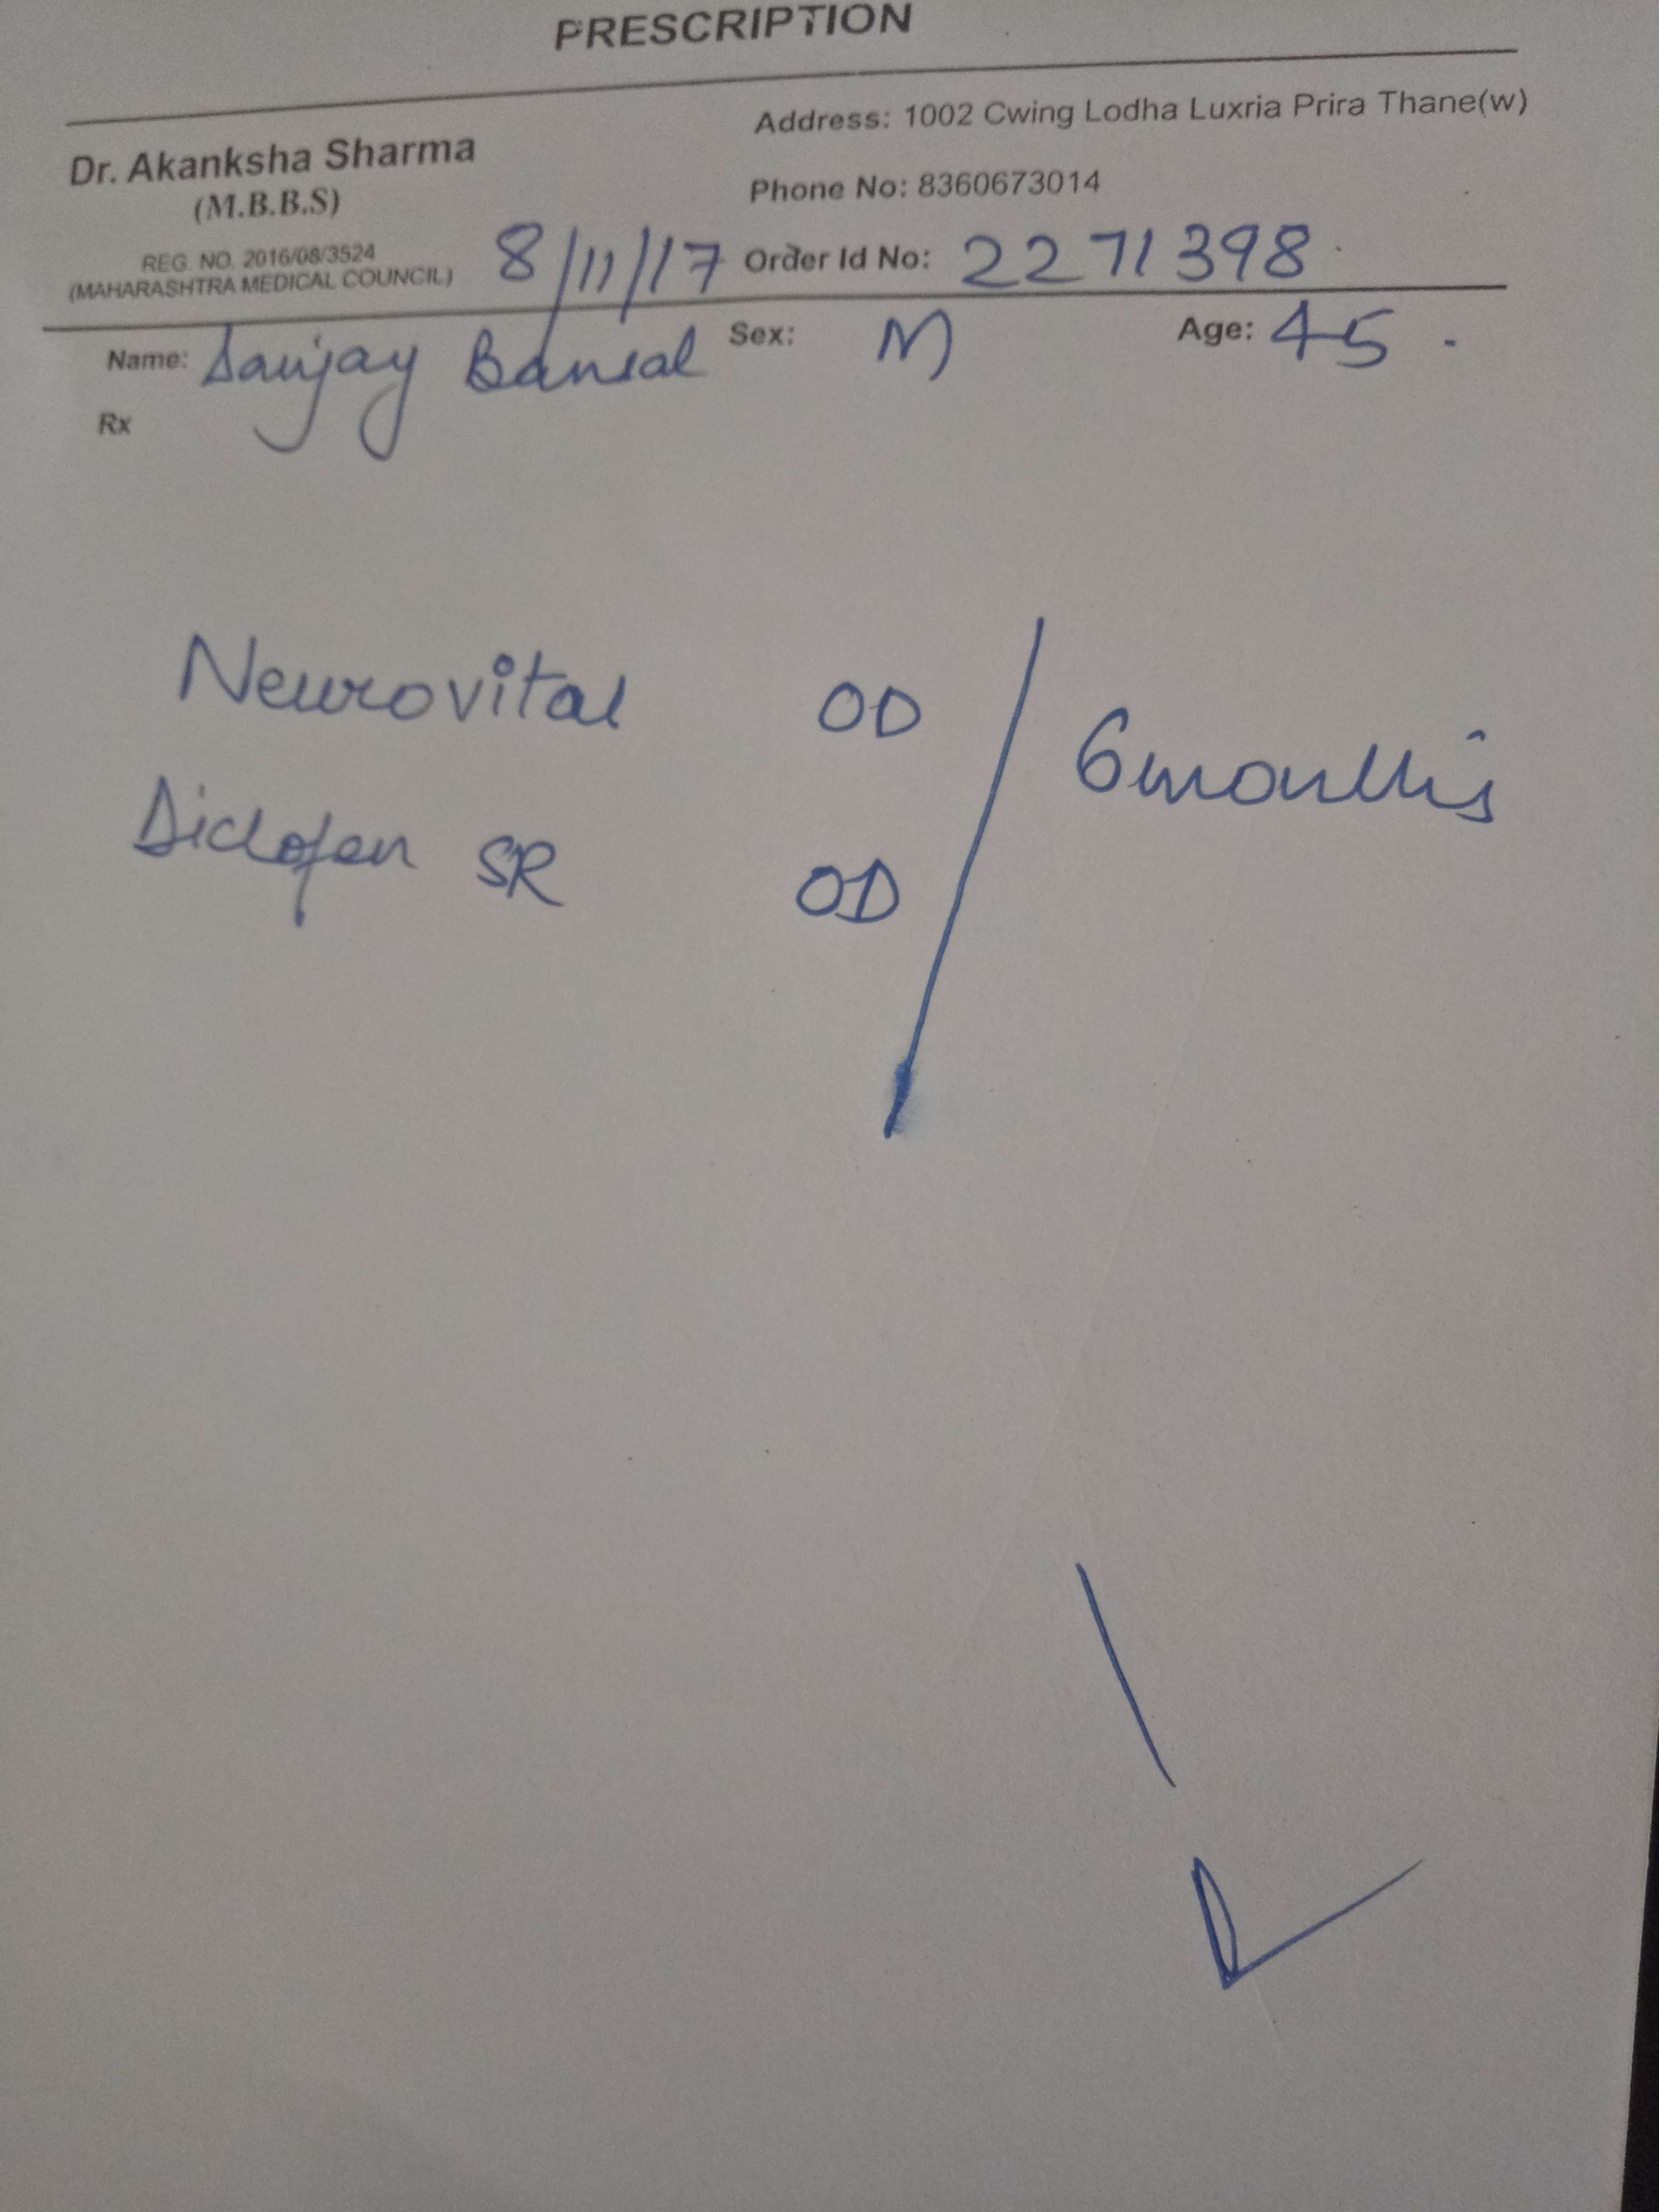 PRESCRIPTION
Dr. Akanksha Sharma
(M.B.B.S)
REG. NO. 2016/08/3524
(MAHARASHTRA MEDICAL COUNCIL)
8/11/17
Address: 1002 Cwing Lodha Luxria Prira Thane(w)
Phone No: 8360673014
Order Id No: 2271398
Name: Sanjay Bansal Sex: M Age: 45
Rx
Neurovital OD
6 months
Diclofen SR OD